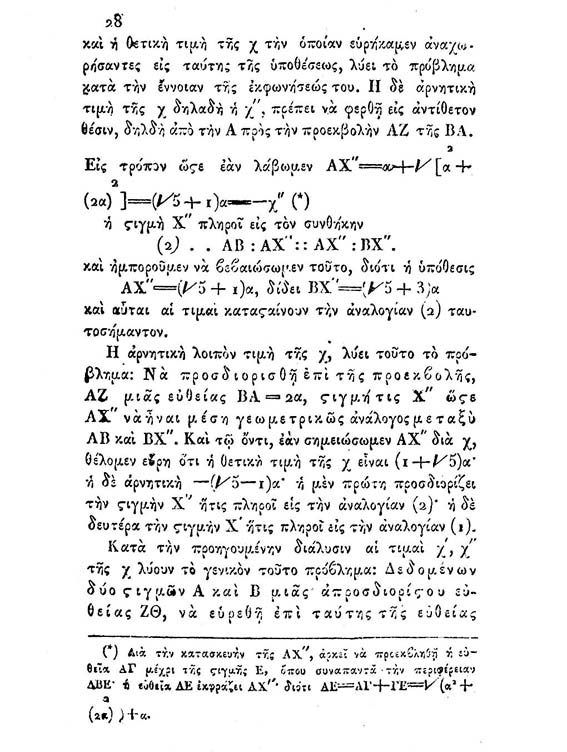 28
καὶ ἡ θετικὴ τιμὴ τῆς χ τὴν ὁποίαν εὑρήκαμεν ἀναχω-
ρήσαντες εἰς ταύτης τῆς ὑποθέσεως, λύει τὸ πρόβλημα
κατὰ τὴν ἔννοιαν τῆς ἐκφωνήσεώς του. Η δὲ ἀρνητικὴ
τιμὴ τῆς χ δηλαδὴ ἡ χ″, πρέπει νὰ φερθῇ εἰς ἀντίθετον
θέσιν, δηλδὴ ἀπὸ τὴν Α πρὸς τὴν προεκβολὴν ΑΖ τῆς ΒΑ.
2
Εἰς τρόπον ὥςε ἐὰν λάβωμεν ΑΧ″=α+√ [α +
2
(2α) ]=(√5 + 1)α=—χ″ (*)
ἡ ςιγμὴ Χ″ πληροῖ εἰς τὸν συνθήκην
(2) . . ΑΒ : ΑΧ″ :: ΑΧ″ : ΒΧ″.
καὶ ἠμποροῦμεν νὰ βεβαιώσωμεν τοῦτο, διότι ἡ ὑπόθεσις
ΑΧ″=(√5 + 1)α, δίδει ΒΧ″=(√5 + 3)α
καὶ αὗται αἱ τιμαὶ καταςαίνουν τὴν ἀναλογίαν (2) ταυ-
τοσήμαντον.
Ἡ ἀρνητικὴ λοιπὸν τιμὴ τῆς χ, λύει τοῦτο τὸ πρό-
βλημα: Νὰ προσδιορισθῇ ἐπὶ τῆς προεκβολῆς,
ΑΖ μιᾶς εὐθείας ΒΑ = 2α, ςιγμή τις Χ″ ὥςε
ΑΧ″ νὰ ἦναι μέση γεωμετρικῶς ἀνάλογος μεταξὺ
ΑΒ καὶ ΒΧ″. Καὶ τῷ ὄντι, ἐὰν σημειώσωμεν ΑΧ″ διὰ χ,
θέλομεν εὕρῃ ὅτι ἡ θετικὴ τιμὴ τῆς χ εἶναι (1+√5)α·
ἡ δὲ ἀρνητικὴ —(√5—1)α· ἡ μὲν πρώτη προσδιορίζει
τὴν ςιγμὴν Χ″ ἥτις πληροῖ εἰς τὴν ἀναλογίαν (2)· ἡ δὲ
δευτέρα τὴν ςιγμὴν Χ′ ἥτις πληροῖ εἰς τὴν ἀναλογίαν (1).
Κατὰ τὴν προηγουμένην διάλυσιν αἱ τιμαὶ χ′, χ″
τῆς χ λύουν τὸ γενικὸν τοῦτο πρόβλημα: Δεδομένων
δύο ςιγμῶν Α καὶ Β μιᾶς ἀπροσδιορίςου εὐ-
θείας ΖΘ, νὰ εὑρεθῇ ἐπὶ ταύτης τῆς εὐθείας
(*) Διὰ τὴν κατασκευὴν τῆς ΑΧ″, ἀρκεῖ νὰ προεκβληθῇ ἡ εὐ-
θεῖα ΑΓ μέχρι τῆς ςιγμῆς Ε, ὅπου συναπαντᾷ τὴν περιφέρειαν
ΔΒΕ· ἡ εὐθεῖα ΔΕ ἐκφράζει ΑΧ″· διότι ΔΕ=ΑΓ+ΓΕ=√(α² +
2
(2α) )+α.